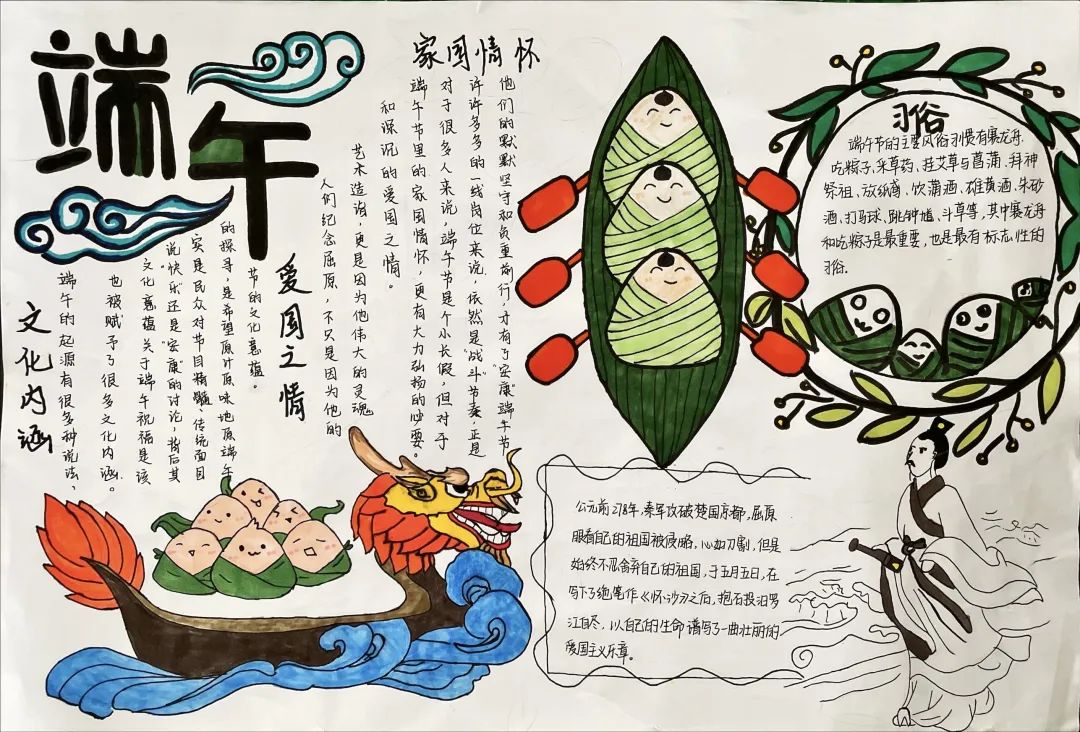 端午
文化内涵
端午的起源有很多种说法，
也被赋予了很多文化内涵。
文化意蕴关于端午祝福是该
说“快乐”还是“安康”的讨论，背后其
实是民众对节目精髓、传统面目
的探寻，是希望原汁原味地原端午
节的文化意蕴。
爱国之情
人们纪念屈原，不只是因为他的
艺术造诣，更是因为他伟大的灵魂
和深沉的爱国之情。
家国情怀
端午节里的家国情怀，更有大力弘扬的必要。
对于很多人来说，端午节是个小长假，但对于
许许多多的一线岗位来说，依然是“战斗”节奏，正是
他们的默默坚守和负重前行，才有了“安康”端午节
习俗
端午节的主要风俗习惯有赛龙舟、
吃粽子、采草药、挂艾草与菖蒲、拜神
祭祖、放纸鸢、饮蒲酒、雄黄酒、朱砂
酒、打马球、跳钟馗、斗草等，其中赛龙舟
和吃粽子是最重要，也是最有标志性的
习俗.
公元前278年，秦军攻破楚国京都，屈原
眼看自己的祖国被侵略，心如刀割，但是
始终不忍舍弃自己的祖国，于五月五日，在
写下了绝笔作《怀沙》之后，抱石投汨罗
江自尽，以自己的生命谱写了一曲壮丽的
爱国主义乐章。